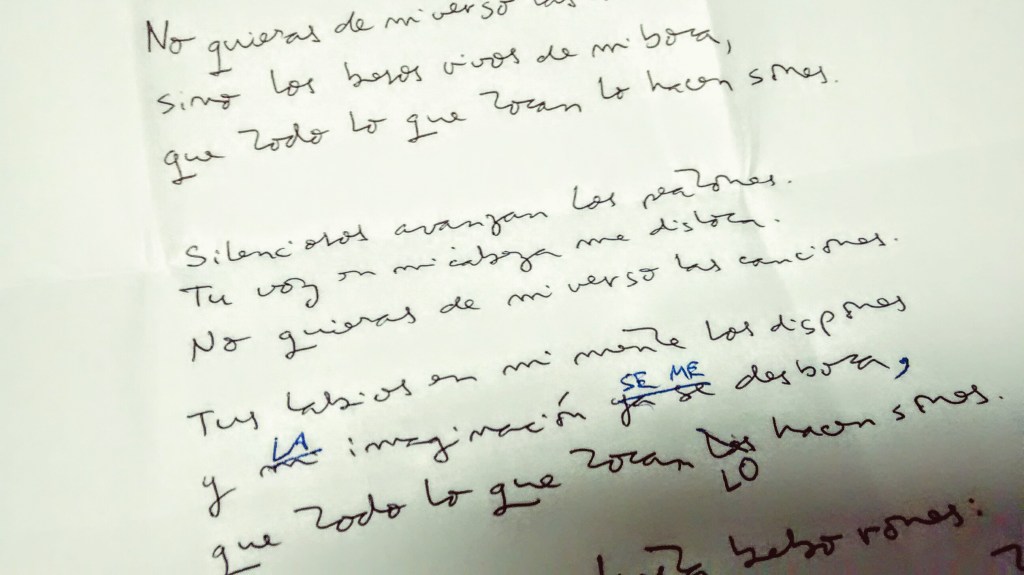 No quieras de mi verso las
sino los besos vivos de mi boca,
que todo lo que tocan lo hacen sones.
Silenciosos avanzan los peatones.
Tu voz en mi cabeza me disloca.
No quieras de mi verso las canciones.
Tus labios en mi mente los dispones
SE ME
y mi imaginación ya se desboca,
LA
que todo lo que tocan los hacen sones.
LO
bebo rones: